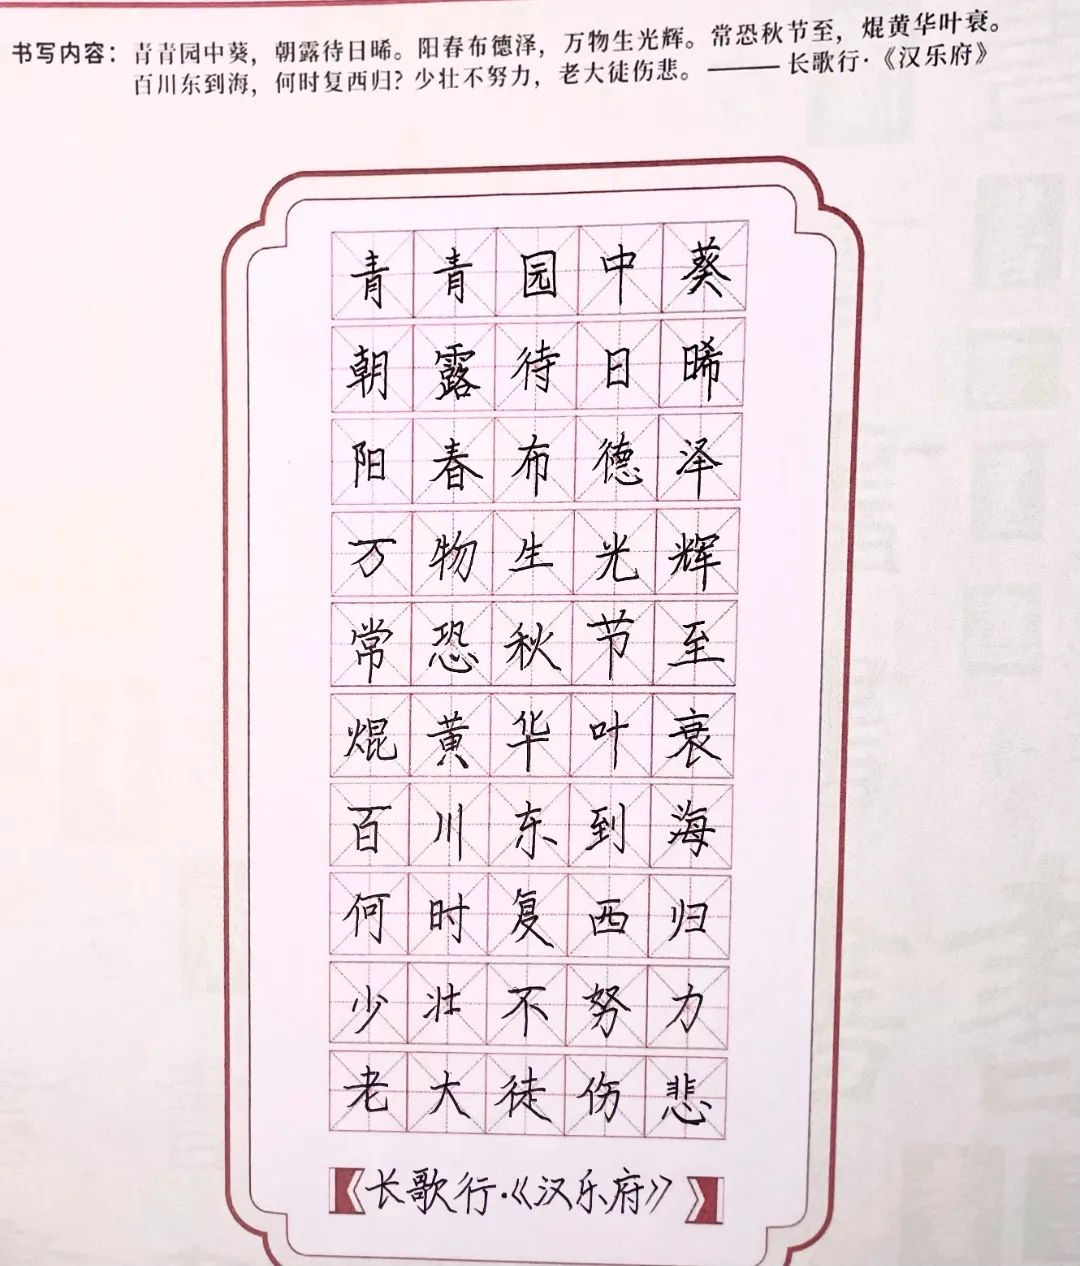 书写内容：青青园中葵，朝露待日晞。阳春布德泽，万物生光辉。常恐秋节至，焜黄华叶衰。
百川东到海，何时复西归？少壮不努力，老大徒伤悲。——长歌行·《汉乐府》
青青园中葵
朝露待日晞
阳春布德泽
万物生光辉
常恐秋节至
焜黄华叶衰
百川东到海
何时复西归
少壮不努力
老大徒伤悲
长歌行·《汉乐府》